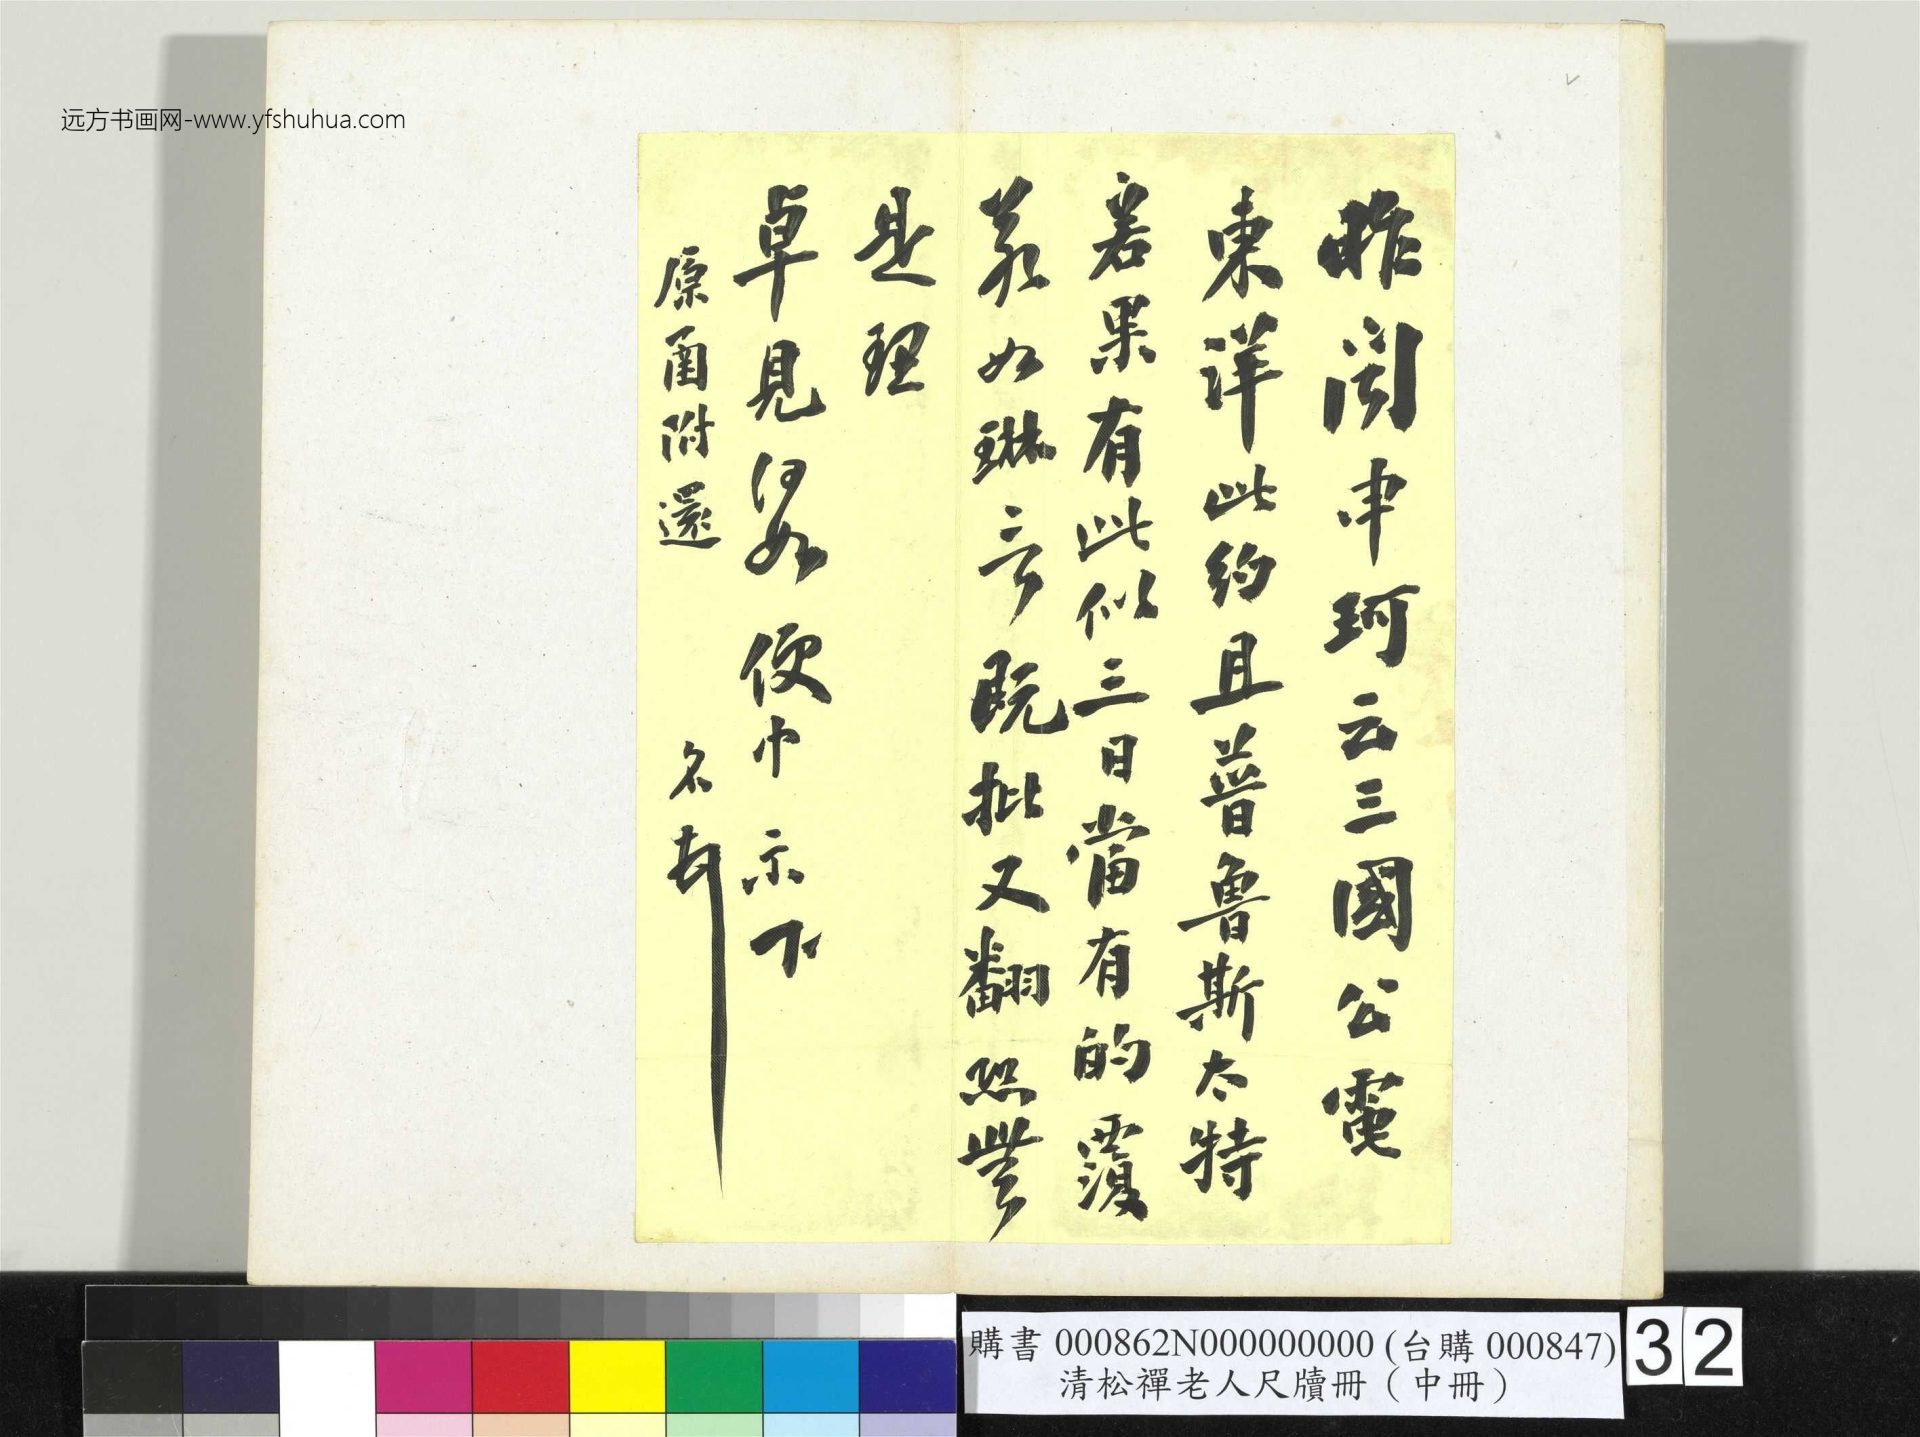 远方书画网-www.yfshuhua.com
昨閱申珂云三國公電
東洋此約且普魯斯太特
若果有此似三日當有的覆
若如琳言既批又翻恐無
是理
卓見何如便中示下
原函附還 名頓
購書 000862N000000000 (台購 000847)
清松禪老人尺牘冊（中冊）
32